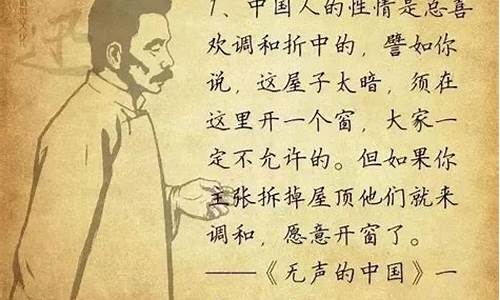 1、中国人的性情是总喜
欢调和折中的，譬如你
说，这屋子太暗，须在
这里开一个窗，大家一
定不允许的。但如果你
主张拆掉屋顶他们就来
调和，愿意开窗了。
——《无声的中国》一
迅